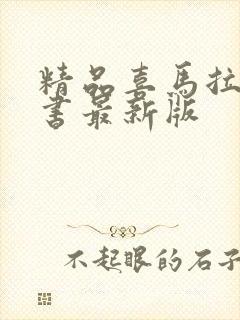 精品喜马拉
书最新版
不起眼的石子